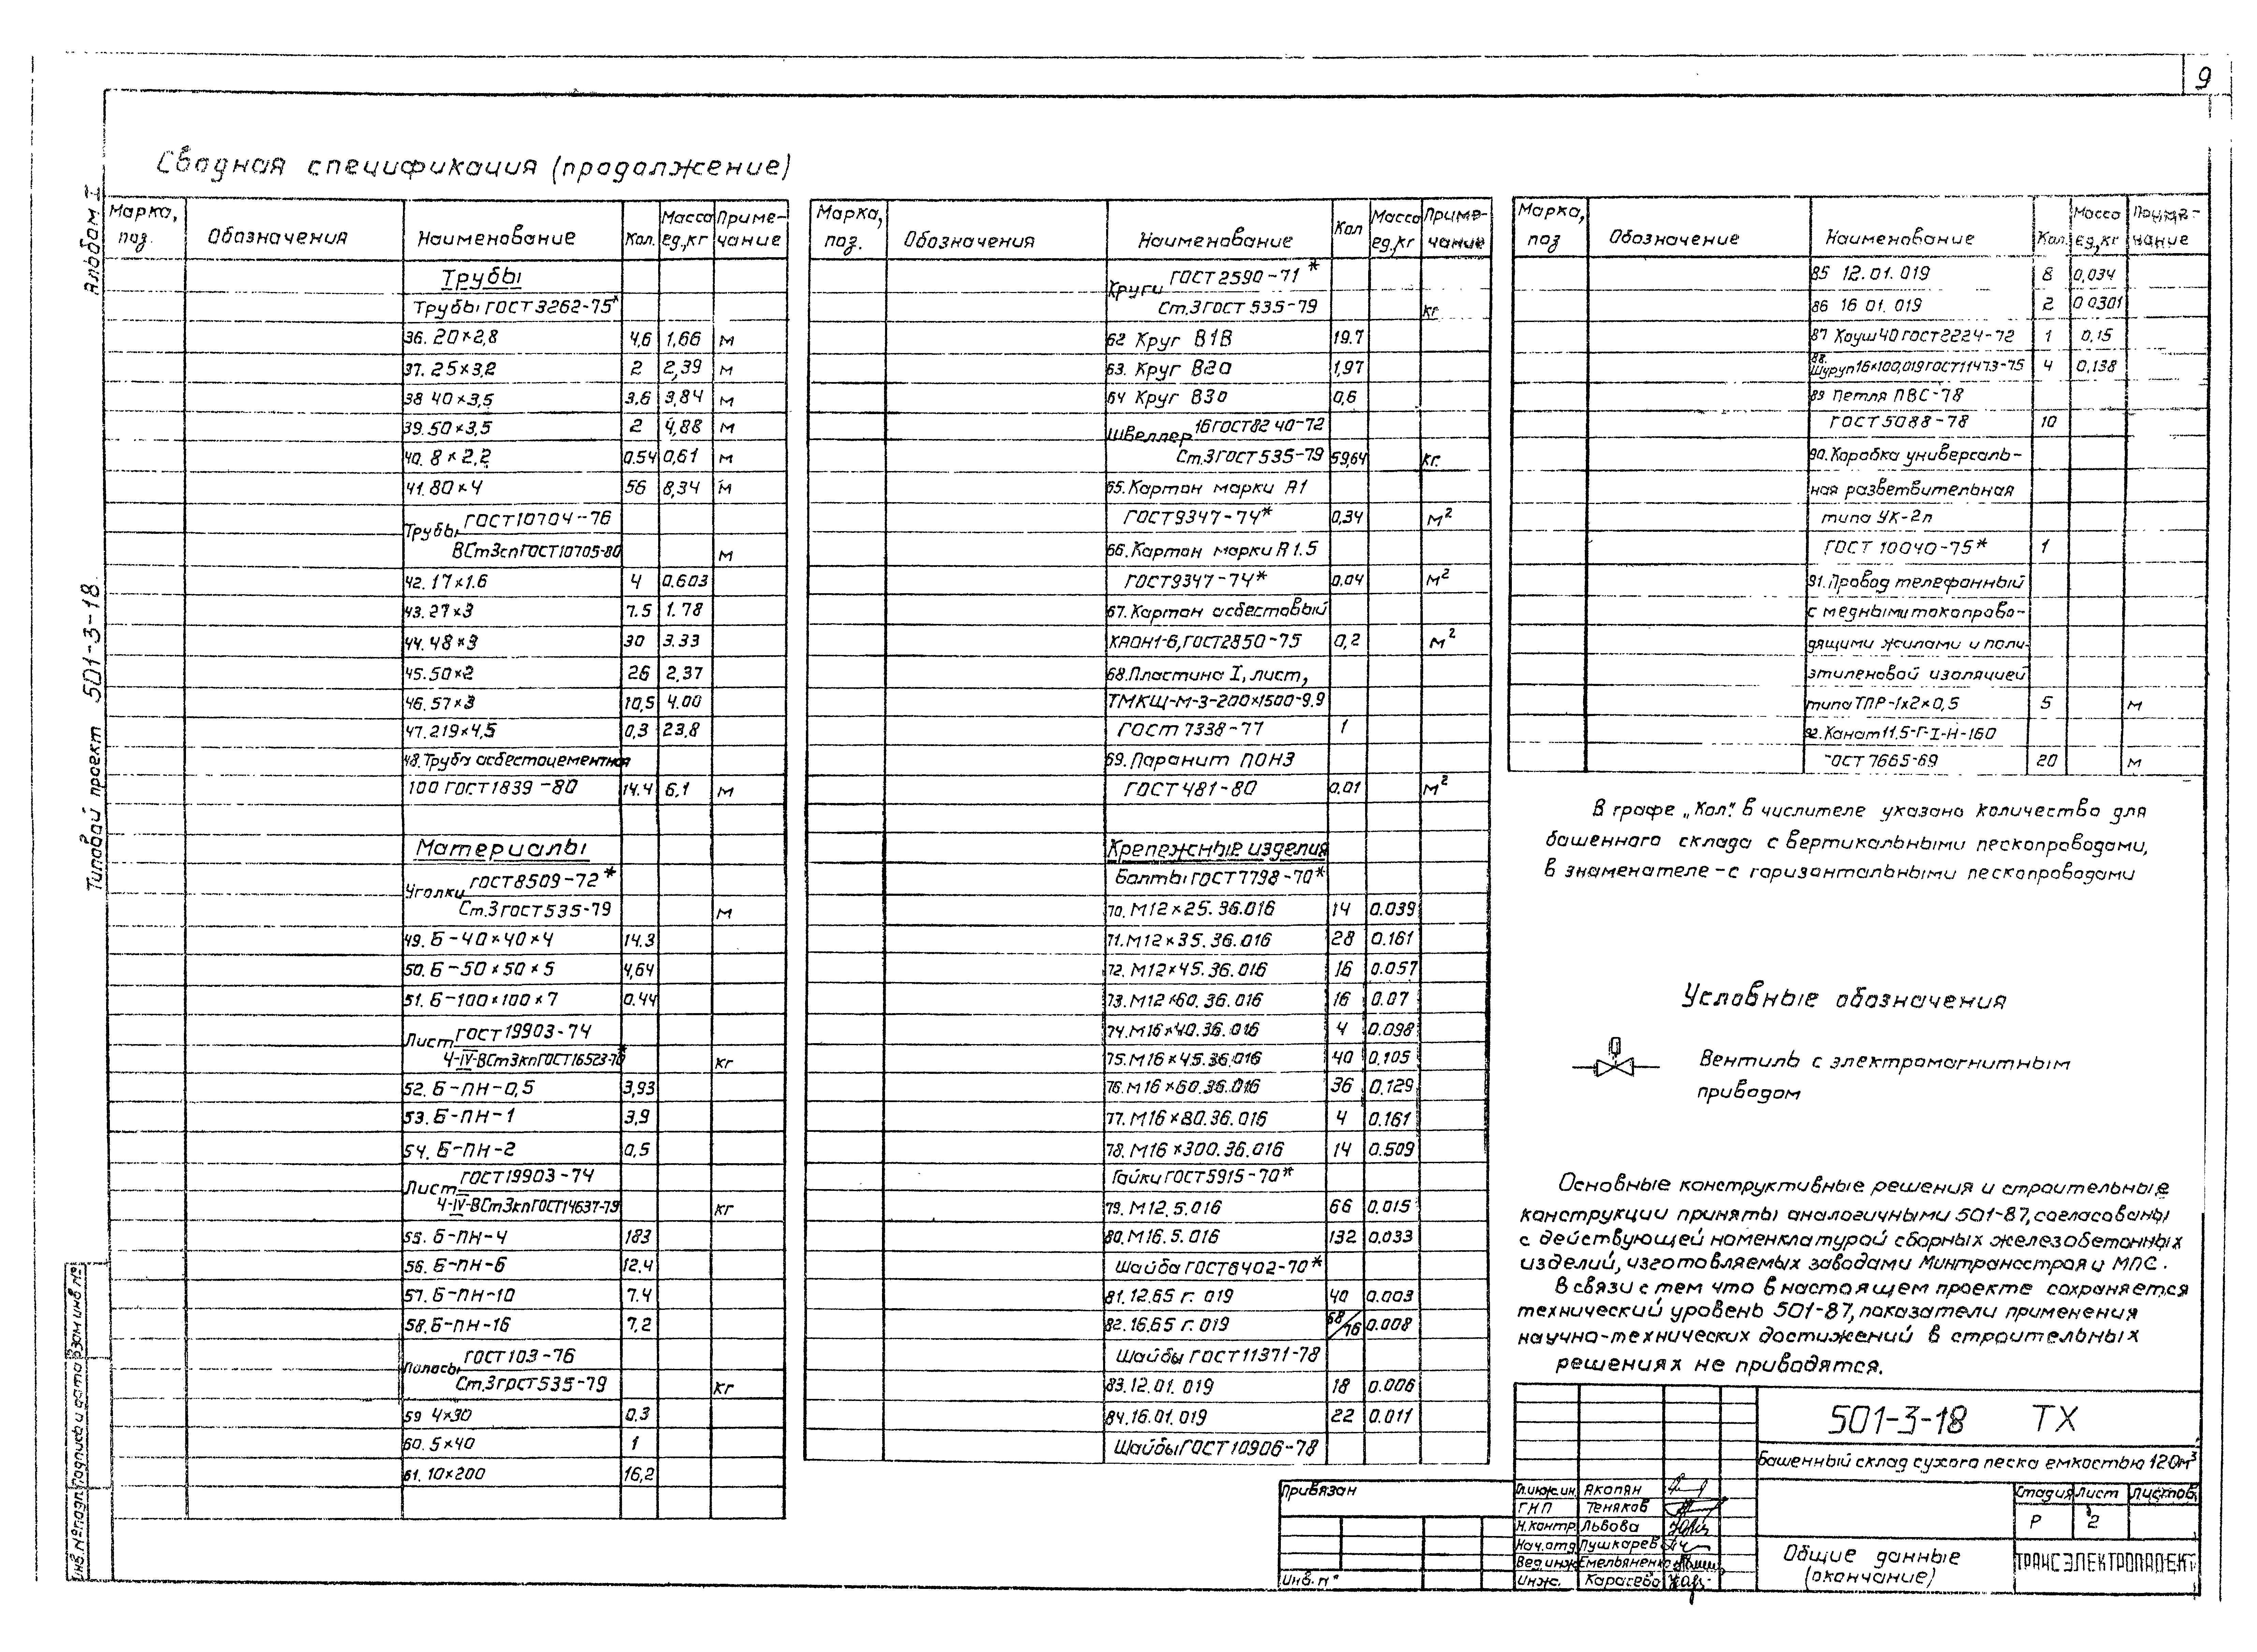 9
Сводная спецификация (продолжение)
Альбом I
Типовой проект 501-3-18.
Инв.№подл. Подпись и дата Взам инв №
Марка, поз. Обозначения Наименование Кол. Масса ед.,кг Приме-чание
Трубы
Трубы ГОСТ 3262-75*
36. 20×2,8 4,6 1,66 м
37. 25×3,2 2 2,39 м
38 40×3,5 3.6 3,84 м
39. 50×3,5 2 4,88 м
40. 8×2,2 0.54 0,61 м
41. 80×4 56 8,34 м
Трубы ГОСТ 10704-76
ВСт3сп ГОСТ 10705-80 м
42. 17×1.6 4 0.603
43. 27×3 7.5 1.78
44. 48×3 30 3.33
45. 50×2 26 2,37
46. 57×3 10,5 4.00
47. 219×4,5 0,3 23,8
48. Труба асбестоцементная
100 ГОСТ 1839-80 14.4 6,1 м
Материалы
Уголки ГОСТ 8509-72*
Ст.3 ГОСТ 535-79 м
49. Б-40×40×4 14.3
50. Б-50×50×5 4,64
51. Б-100×100×7 0.44
Лист ГОСТ 19903-74
4-IV-ВСт3кп ГОСТ 16523-70* кг
52. Б-ПН-0,5 3,93
53. Б-ПН-1 3,9
54. Б-ПН-2 0,5
Лист ГОСТ 19903-74
4-IV-ВСт3кп ГОСТ 14637-79 кг
55. Б-ПН-4 183
56. Б-ПН-6 12,4
57. Б-ПН-10 7.4
58. Б-ПН-16 7,2
Полосы ГОСТ 103-76
Ст.3 ГОСТ 535-79 кг
59 4×30 0,3
60. 5×40 1
61. 10×200 16,2
Марка, поз. Обозначения Наименование Кол Масса ед.,кг Приме-чание
Круги ГОСТ 2590-71*
Ст.3 ГОСТ 535-79 кг
62 Круг В18 19.7
63. Круг В20 1,97
64 Круг В30 0,6
Швеллер 16 ГОСТ 8240-72
Ст.3 ГОСТ 535-79 59,64 кг.
65. Картон марки А1
ГОСТ 9347-74* 0,34 м²
66. Картон марки А1.5
ГОСТ 9347-74* 0.04 м²
67. Картон асбестовый
КАОН1-6, ГОСТ 2850-75 0,2 м²
68. Пластина I, лист,
ТМКЩ-М-3-200×1500-9.9
ГОСТ 7338-77 1
69. Паранит ПОНЗ
ГОСТ 481-80 0.01 м²
Крепежные изделия
Болты ГОСТ 7798-70*
70. М12×25.36.016 14 0.039
71. М12×35.36.016 28 0.161
72. М12×45.36.016 16 0.057
73. М12×60.36.016 16 0.07
74. М16×40.36.016 4 0.098
75. М16×45.36.016 40 0.105
76. М16×60.36.016 36 0.129
77. М16×80.36.016 4 0.161
78. М16×300.36.016 14 0.509
Гайки ГОСТ 5915-70*
79. М12.5.016 66 0.015
80. М16.5.016 132 0.033
Шайба ГОСТ 6402-70*
81. 12.65 г. 019 40 0.003
82. 16.65 г. 019 68/76 0.008
Шайбы ГОСТ 11371-78
83. 12.01.019 18 0.006
84. 16.01.019 22 0.011
Шайбы ГОСТ 10906-78
Марка, поз Обозначение Наименование Кол. Масса ед.,кг Приме-чание
85 12.01.019 8 0,034
86 16 01.019 2 0.0301
87 Коуш 40 ГОСТ 2224-72 1 0,15
88. Шуруп 16×100,019 ГОСТ 11473-75 4 0,138
89 Петля ПВС-78
ГОСТ 5088-78 10
90. Коробка универсаль-
ная разветвительная
типа УК-2п
ГОСТ 10040-75* 1
91. Провод телефонный
с медными токопрово-
дящими жилами и поли-
этиленовой изоляцией
типа ТПР-1×2×0,5 5 м
92. Канат 11,5-Г-I-Н-160
ГОСТ 7665-69 20 м
В графе „Кол". в числителе указано количество для
башенного склада с вертикальными пескопроводами,
в знаменателе - с горизонтальными пескопроводами
Условные обозначения
Вентиль с электромагнитным
приводом
Основные конструктивные решения и строительные
конструкции приняты аналогичными 501-87, согласованы
с действующей номенклатурой сборных железобетонных
изделий, изготовляемых заводами Минтрансстроя и МПС.
В связи с тем что в настоящем проекте сохраняется
технический уровень 501-87, показатели применения
научно-технических достижений в строительных
решениях не приводятся.
501-3-18 ТХ
Башенный склад сухого песка емкостью 120м³
Привязан
Инв. №
Гл.инж.ин. Акопян
ГНП Теняков
Н.контр. Львова
Нач.отд Пушкарев
Вед.инж Емельяненко
Инж. Карасева
Стадия Лист Листов
Р 2
Общие данные
(окончание)
ТРАНСЭЛЕКТРОПРОЕКТ